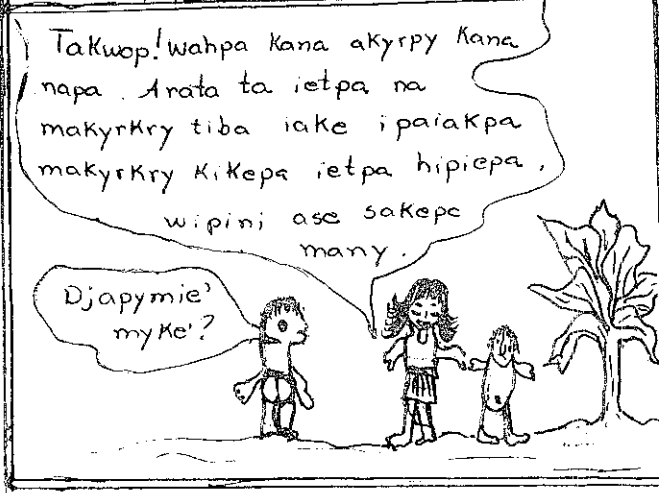 Takwop! wahpa Kana akyrpy Kana
napa. Arata ta ietpa na
makyrkry tiba iake ipaiakpa
makyrkry Kikepa ietpa hipiepa,
wipini ase sakepe
many.
Djapymie'
myke'?